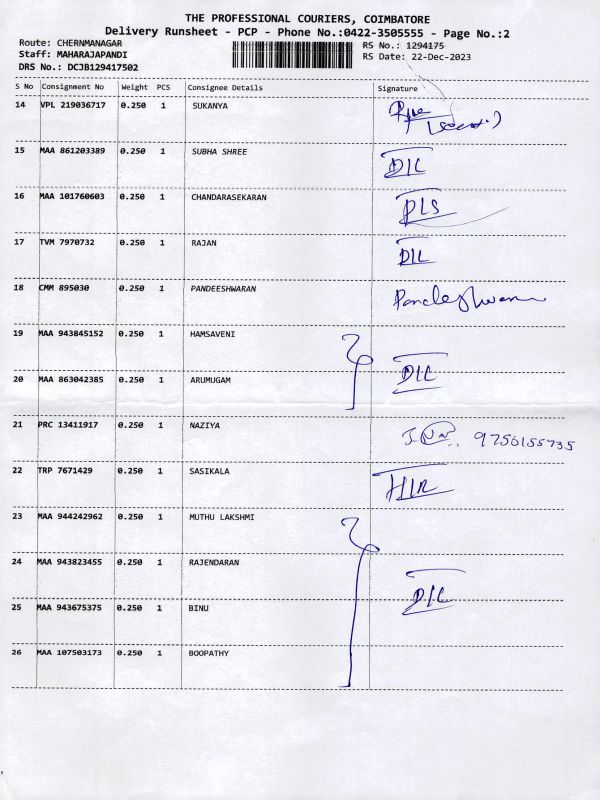 THE PROFESSIONAL COURIERS, COIMBATORE
Delivery Runsheet - PCP - Phone No.:0422-3505555 - Page No.:2
Route: CHERNMANAGAR
RS No.: 1294175
Staff: MAHARAJAPANDI
RS Date: 22-Dec-2023
DRS No.: DCJB129417502
S No Consignment No Weight PCS Consignee Details Signature
14 VPL 219036717 0.250 1 SUKANYA
15 MAA 861203389 0.250 1 SUBHA SHREE D/L
16 MAA 101760603 0.250 1 CHANDARASEKARAN
17 TVM 7970732 0.250 1 RAJAN D/L
18 CMM 895030 0.250 1 PANDEESHWARAN
19 MAA 943845152 0.250 1 HAMSAVENI
20 MAA 863042385 0.250 1 ARUMUGAM D/L
21 PRC 13411917 0.250 1 NAZIYA 9756155735
22 TRP 7671429 0.250 1 SASIKALA
23 MAA 944242962 0.250 1 MUTHU LAKSHMI
24 MAA 943823455 0.250 1 RAJENDARAN D/L
25 MAA 943675375 0.250 1 BINU
26 MAA 107503173 0.250 1 BOOPATHY